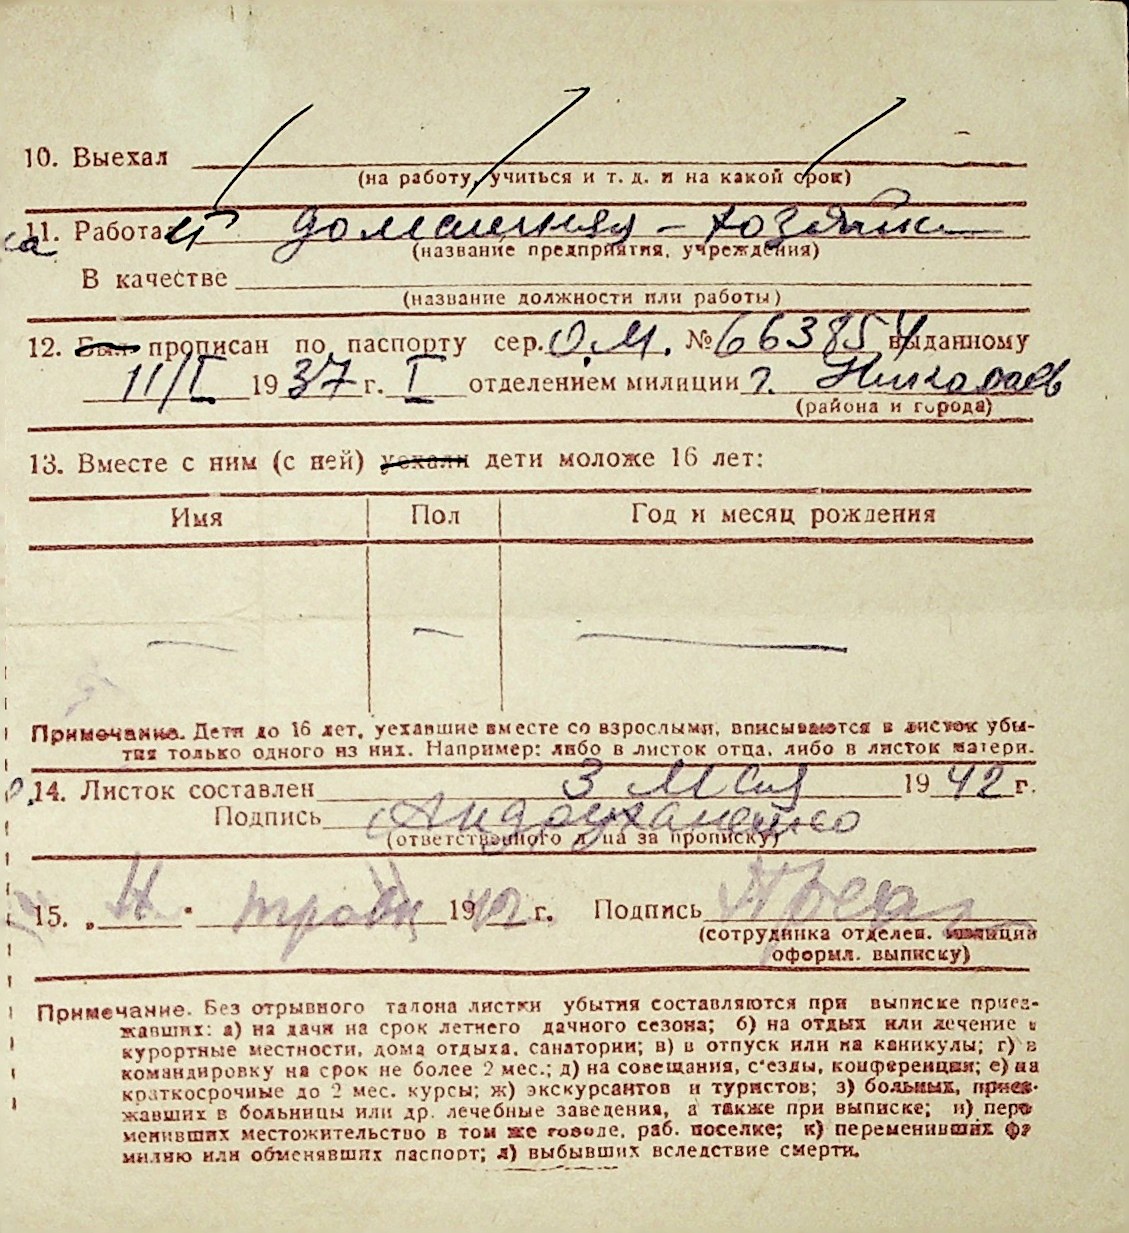 10. Выехал
(на работу, учиться и т. д. и на какой срок)
11. Работает домашняя - хозяйка
(название предприятия, учреждения)
В качестве
(название должности или работы)
12. Был прописан по паспорту сер. О.М. № 663854 выданному
11/I 1937 г. I отделением милиции г. Николаев
(района и города)
13. Вместе с ним (с ней) уехали дети моложе 16 лет:
Имя Пол Год и месяц рождения
— — —
Примечание. Дети до 16 лет, уехавшие вместе со взрослыми, вписываются в листок убы-
тия только одного из них. Например: либо в листок отца, либо в листок матери.
14. Листок составлен 3 мая 1942 г.
Подпись
(ответственного лица за прописку)
15. „ 4 " травня 1942 г. Подпись
(сотрудника отделен. милиции
оформл. выписку)
Примечание. Без отрывного талона листки убытия составляются при выписке приез-
жавших: а) на дачи на срок летнего дачного сезона; б) на отдых или лечение в
курортные местности, дома отдыха, санатории; в) в отпуск или на каникулы; г) в
командировку на срок не более 2 мес.; д) на совещания, с'езды, конференции; е) на
краткосрочные до 2 мес. курсы; ж) экскурсантов и туристов; з) больных, приез-
жавших в больницы или др. лечебные заведения, а также при выписке; и) пере
менивших местожительство в том же городе, раб. поселке; к) переменивших фа
милию или обменявших паспорт; л) выбывших вследствие смерти.